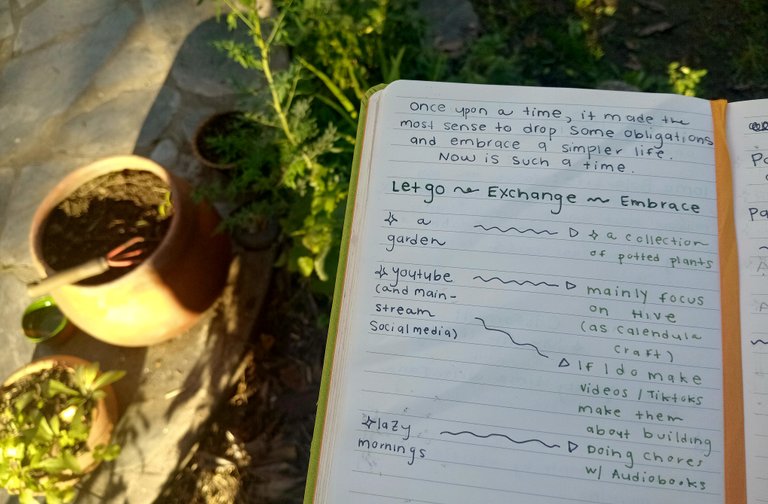 Once upon a time, it made the
most sense to drop some obligations
and embrace a simpler life.
Now is such a time.
Let go ~ Exchange ~ Embrace
a
garden
a collection
of potted plants
youtube
(and main-
stream
social media)
mainly focus
on Hive
(as calendula
craft)
If I do make
videos / Tiktoks
make them
about building
lazy
mornings
Doing chores
w/ Audiobooks